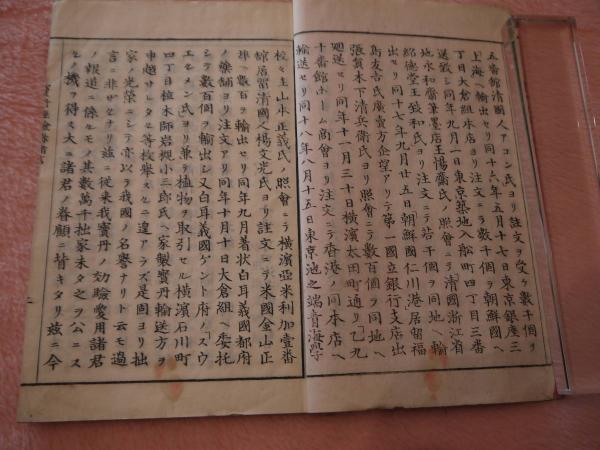 五番館清國人アコン氏ヨリ註文ヲ受ケ數千個ヲ
上海ヘ輸出セリ同十六年五月十七日東京銀座三
丁目大倉組本店ヨリ注文ニテ數十個ヲ朝鮮國ヘ
送致シ同年九月一日東京築地入船町四丁目三番
地永和齋筆墨店王惕齋氏ノ照會ニテ清國浙江省
紹德堂王 和氏ヨリ注文ニテ若干個ヲ同地ヘ輸
出セリ同十七年九月廿五日朝鮮國仁川港居留福
島友吉氏廣賣方企望アリテ第一國立銀行支店出
張員木下清兵衛氏ヨリ照會ニテ數百個ヲ同地ヘ
廻送セリ同年十一月三十日橫濱太田町通リ乙九
十番館ホーム商會ヨリ注文ニテ香港ノ同本店ヘ
輸送セリ同十八年八月十五日東京池之端音海學
校々主山水正義氏ノ照會ニテ橫濱亞米利加壹番
館居留清國人楊文光氏ヨリ註文ニテ米國金山正
埠ヘ數百ヲ輸出セリ同年九月著狀白耳義國都府
ノ藥舖ヨリ注文アリ同年十月十日大倉組ヘ委托
シテ數百個ヲ輸出シ又白耳義國ゲント府ノズウ
エセメン氏ヨリ兼テ植物ヲ取引セル橫濱石川町
四丁目植木師岩槻小三郎氏ヘ家製寶丹輸送方ヲ
申越サレタル等枚擧スルニ遑アラズ是固ヨリ拙
家ノ光榮ニシテ亦以テ我國ノ名譽ナリト云モ過
言ニ非ザルナリ茲ニ從来我寶丹ノ効驗愛用諸君
ノ報道ニ係ルモノ其數萬千拙家未タ之ヲ公ニス
ルノ機ヲ得ズ大ニ諸君ノ眷顧ニ背キタリ茲ニ今